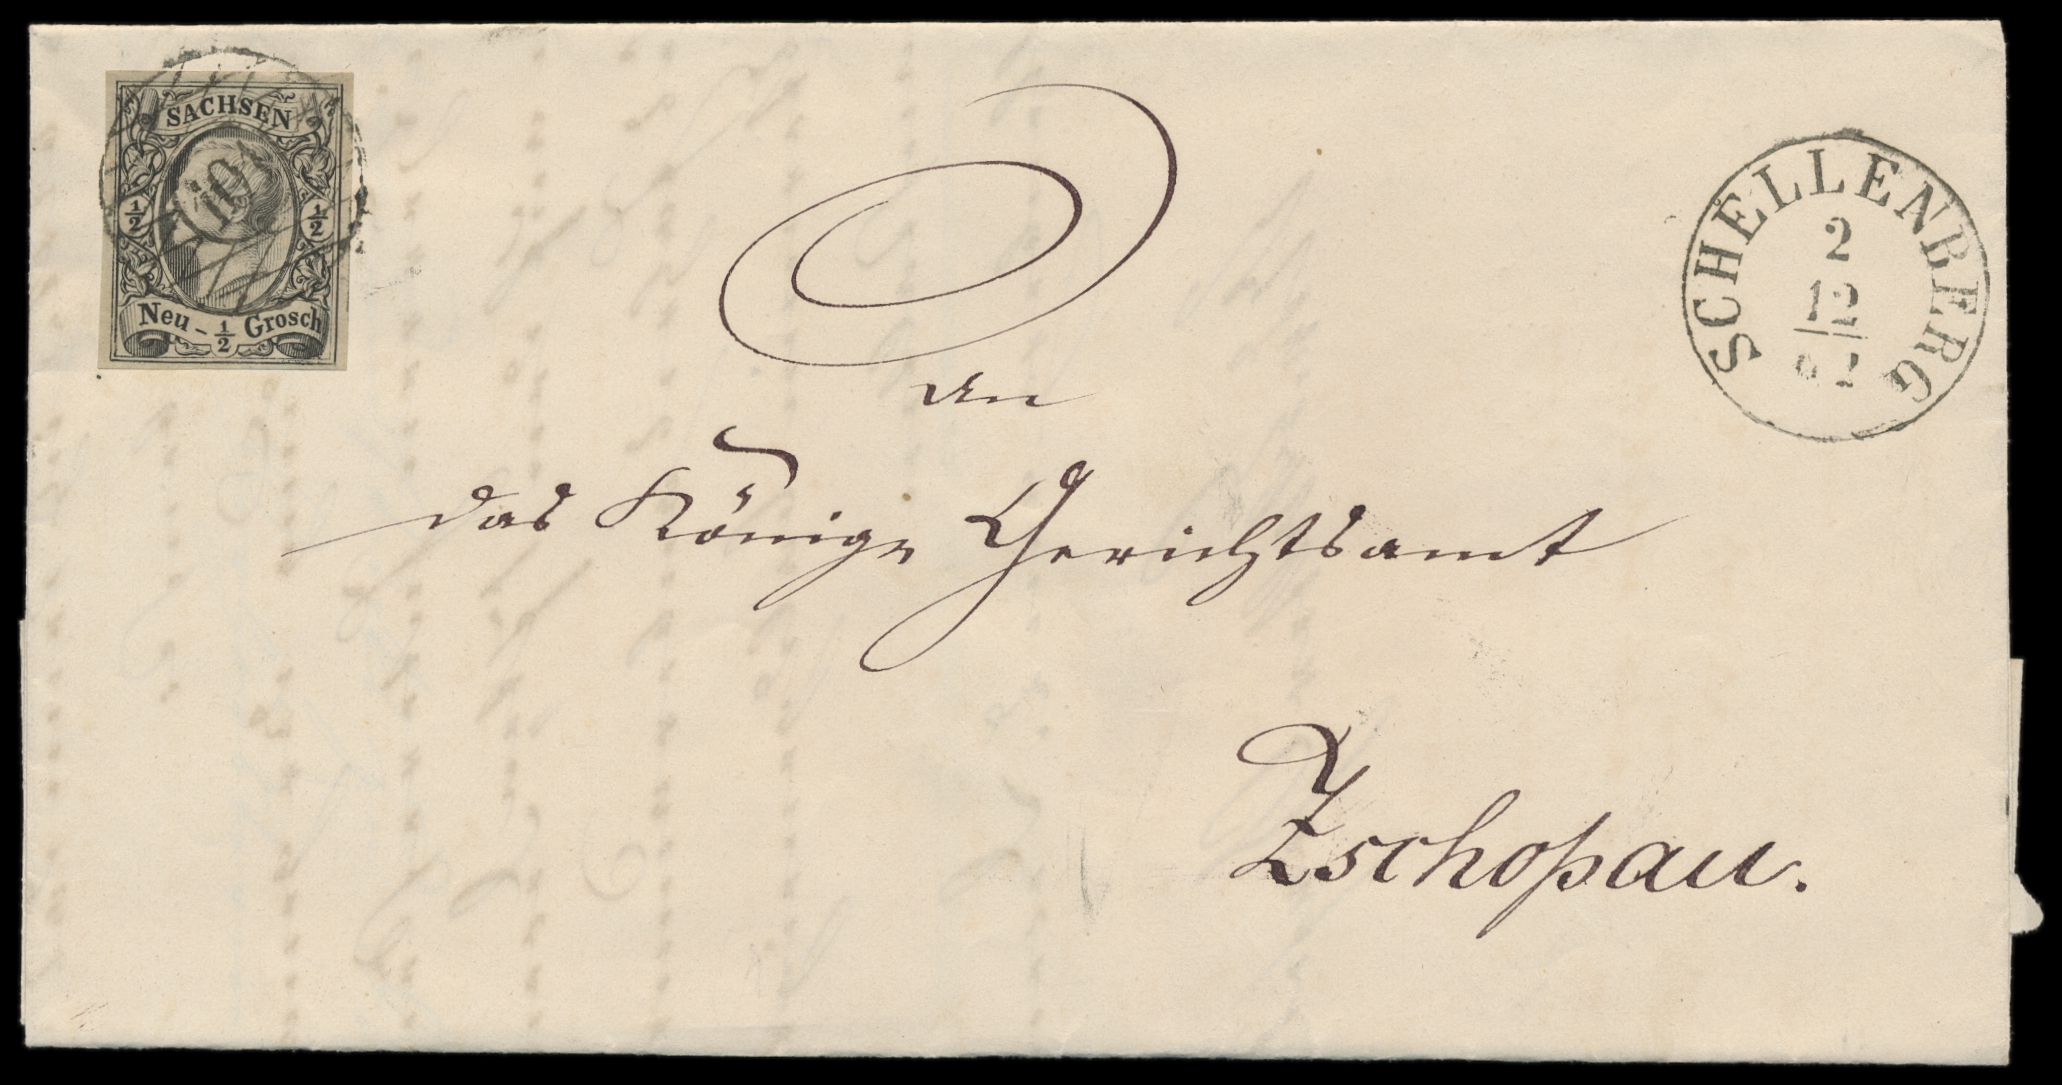 SACHSEN
½ ½
Neu - ½ Grosch
SCHELLENBERG
2
12
An
das Königl Gerichtsamt
Zschopau.